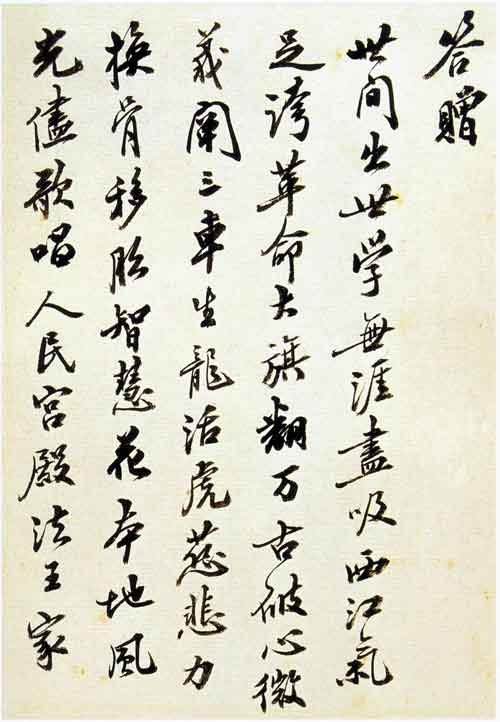 答贈
世间出世学無涯盡吸西江氣
足誇革命大旗翻万古破心微
義闡三車生龍活虎慈悲力
换骨移胎智慧花本地風
光儘歌唱人民宮殿法王家